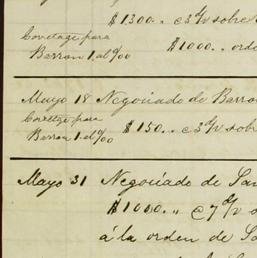 $1300.. c3 d/v sobre
Corretage para
Barron 1. al 0/00
$1000.. orde
Mayo 18 Negociado de Barro
Corretge para
Barron 1. el 0/00
$150.. c3 d/v sob
Mayo 31 Negociado de San
$1000.. c7 d/v s
á la orden de Sa